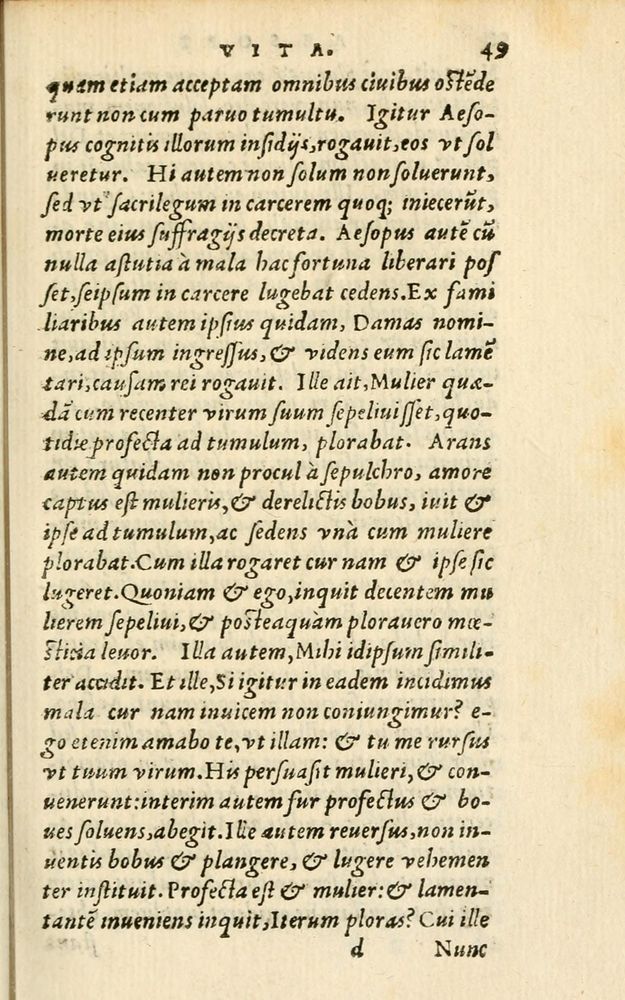 VITA. 49
quam etiam acceptam omnibus ciuibus ostẽde
runt non cum paruo tumultu. Igitur Aeso-
pus cognitis illorum insidijs, rogauit, eos vt sol
ueretur. Hi autem non solum non soluerunt,
sed vt sacrilegum in carcerem quoq; iniecerũt,
morte eius suffragijs decreta. Aesopus autẽ cũ
nulla astutia à mala hac fortuna liberari pos
set, seipsum in carcere lugebat cedens. Ex fami
liaribus autem ipsius quidam, Damas nomi-
ne, ad ipsum ingressus, & videns eum sic lamẽ
tari, causam rei rogauit. Ille ait, Mulier quæ-
dã cum recenter virum suum sepeliuisset, quo-
tidie profecta ad tumulum, plorabat. Arans
autem quidam non procul à sepulchro, amore
captus est mulieris, & derelictis bobus, iuit &
ipse ad tumulum, ac sedens vnà cum muliere
plorabat. Cum illa rogaret cur nam & ipse sic
lugeret. Quoniam & ego, inquit decentem mu
lierem sepeliui, & posteaquàm plorauero mœ-
sticia leuor. Illa autem, Mihi idipsum simili-
ter accidit. Et ille, Si igitur in eadem incidimus
mala cur nam inuicem non coniungimur? e-
go etenim amabo te, vt illam: & tu me rursus
vt tuum virum. His persuasit mulieri, & con-
uenerunt: interim autem fur profectus & bo-
ues soluens, abegit. Ille autem reuersus, non in-
uentis bobus & plangere, & lugere vehemen
ter instituit. Profecta est & mulier: & lamen-
tantẽ inueniens inquit, Iterum ploras? Cui ille
d Nunc